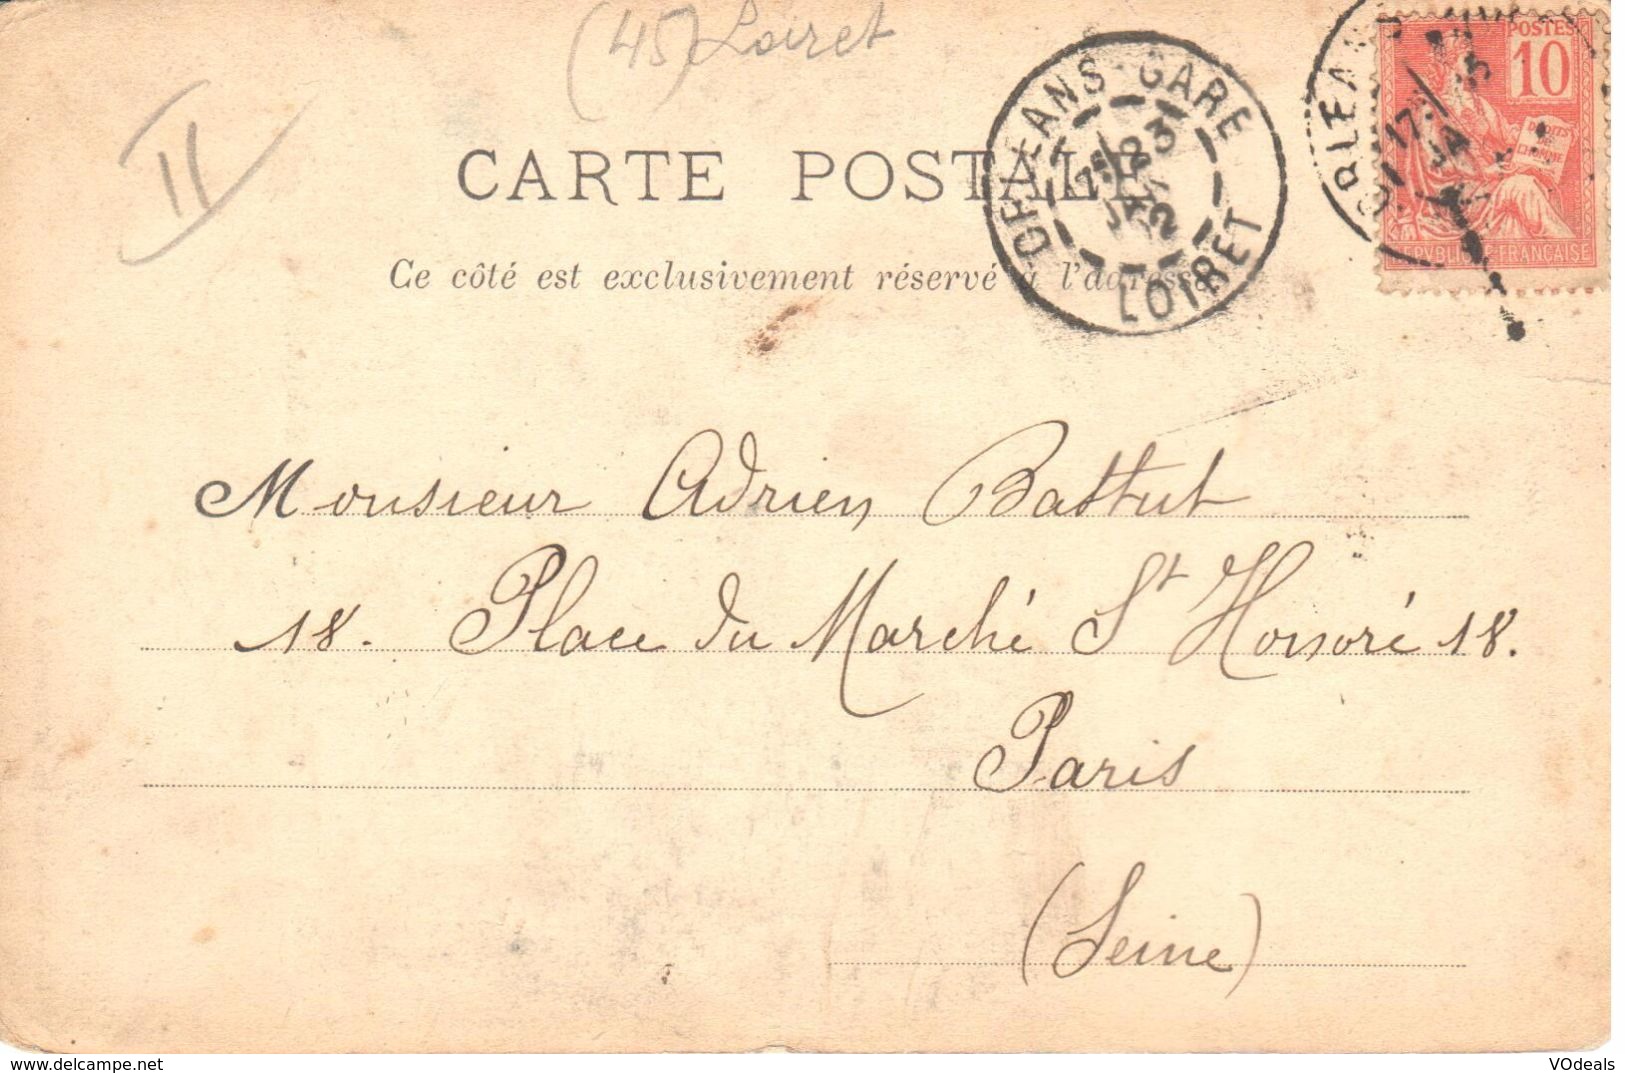 (45) Loiret
II
CARTE POSTALE
Ce côté est exclusivement réservé à l'adresse
ORLEANS-GARE
23
LOIRET
ORLEANS
17
POSTES
10
DROITS
DE
L'HOMME
REPVBLIQVE FRANÇAISE
Monsieur Adrien Battut
18. Place du Marché St Honoré 18.
Paris
(Seine)
www.delcampe.net
VOdeals